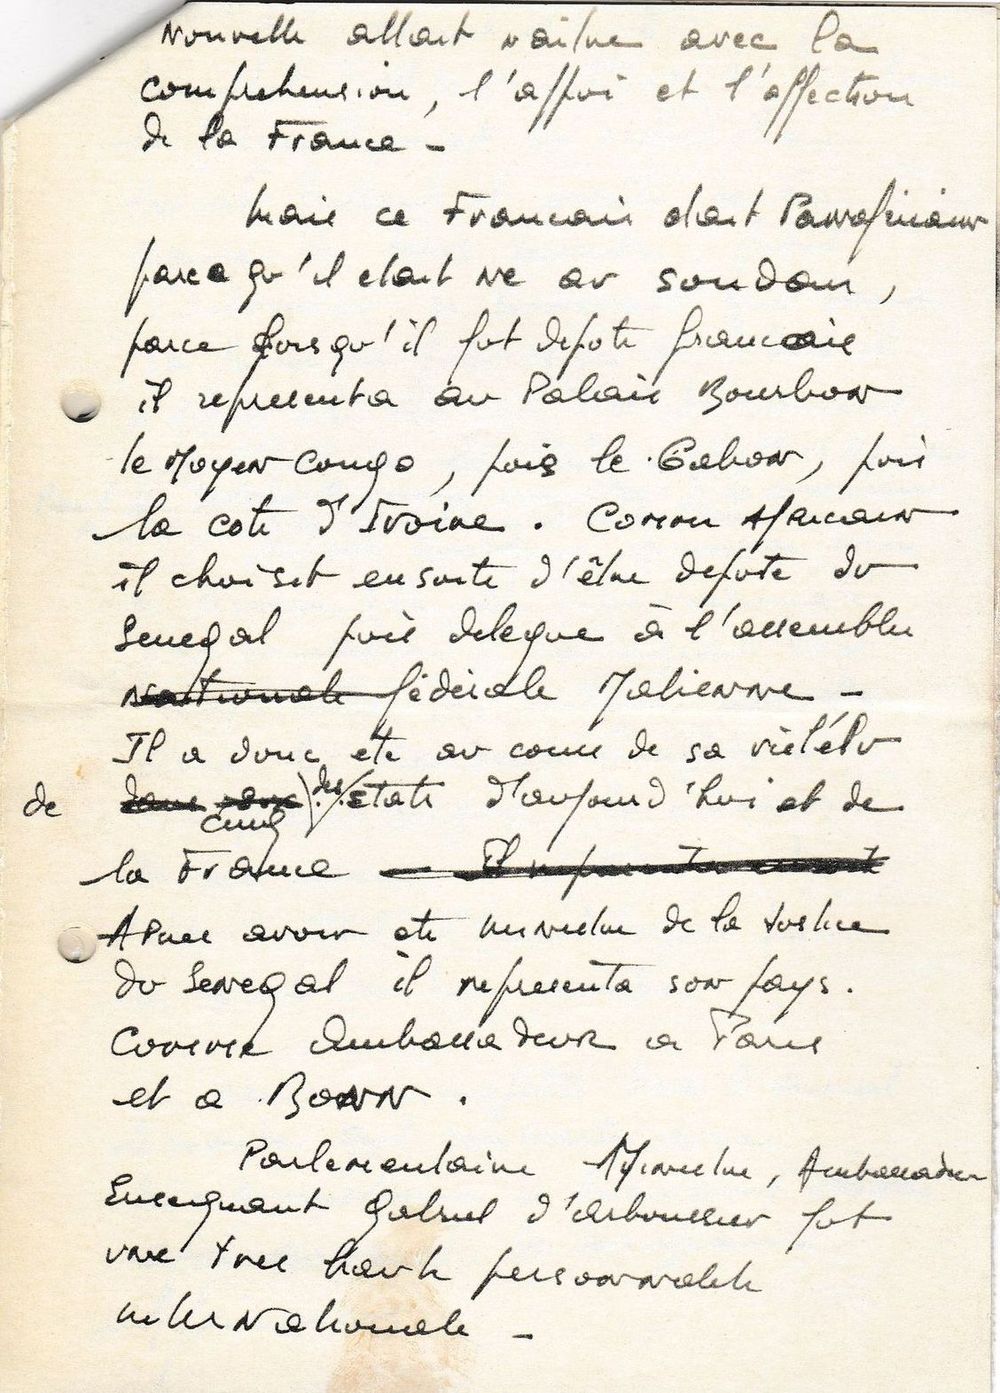 Nouvelle allait naitre avec la
comprehension, l'appui et l'affection
de la France -
Mais ce Francais etait Panafricain
parce qu'il etait ne au Soudan,
parce lorsqu'il fut depute francais
il representa au Palais Bourbon
le Moyen Congo, puis le Gabon, puis
la cote d'Ivoire. Comme Africain
il choisit ensuite d'être depute du
Senegal puis delegue à l'assemblee
Nationale fédérale Malienne -
Il a donc ete au cours de sa vie l'élu
de cinq des états d'aujourd'hui et de
la France
Apres avoir ete ministre de la Justice
du Senegal il representa son pays.
Comme Ambassadeur a Paris
et a Bonn.
Parlementaire Ministre, Ambassadeur
Enseignant Gabriel d'Arboussier fut
une tres haute personnalite
internationale -